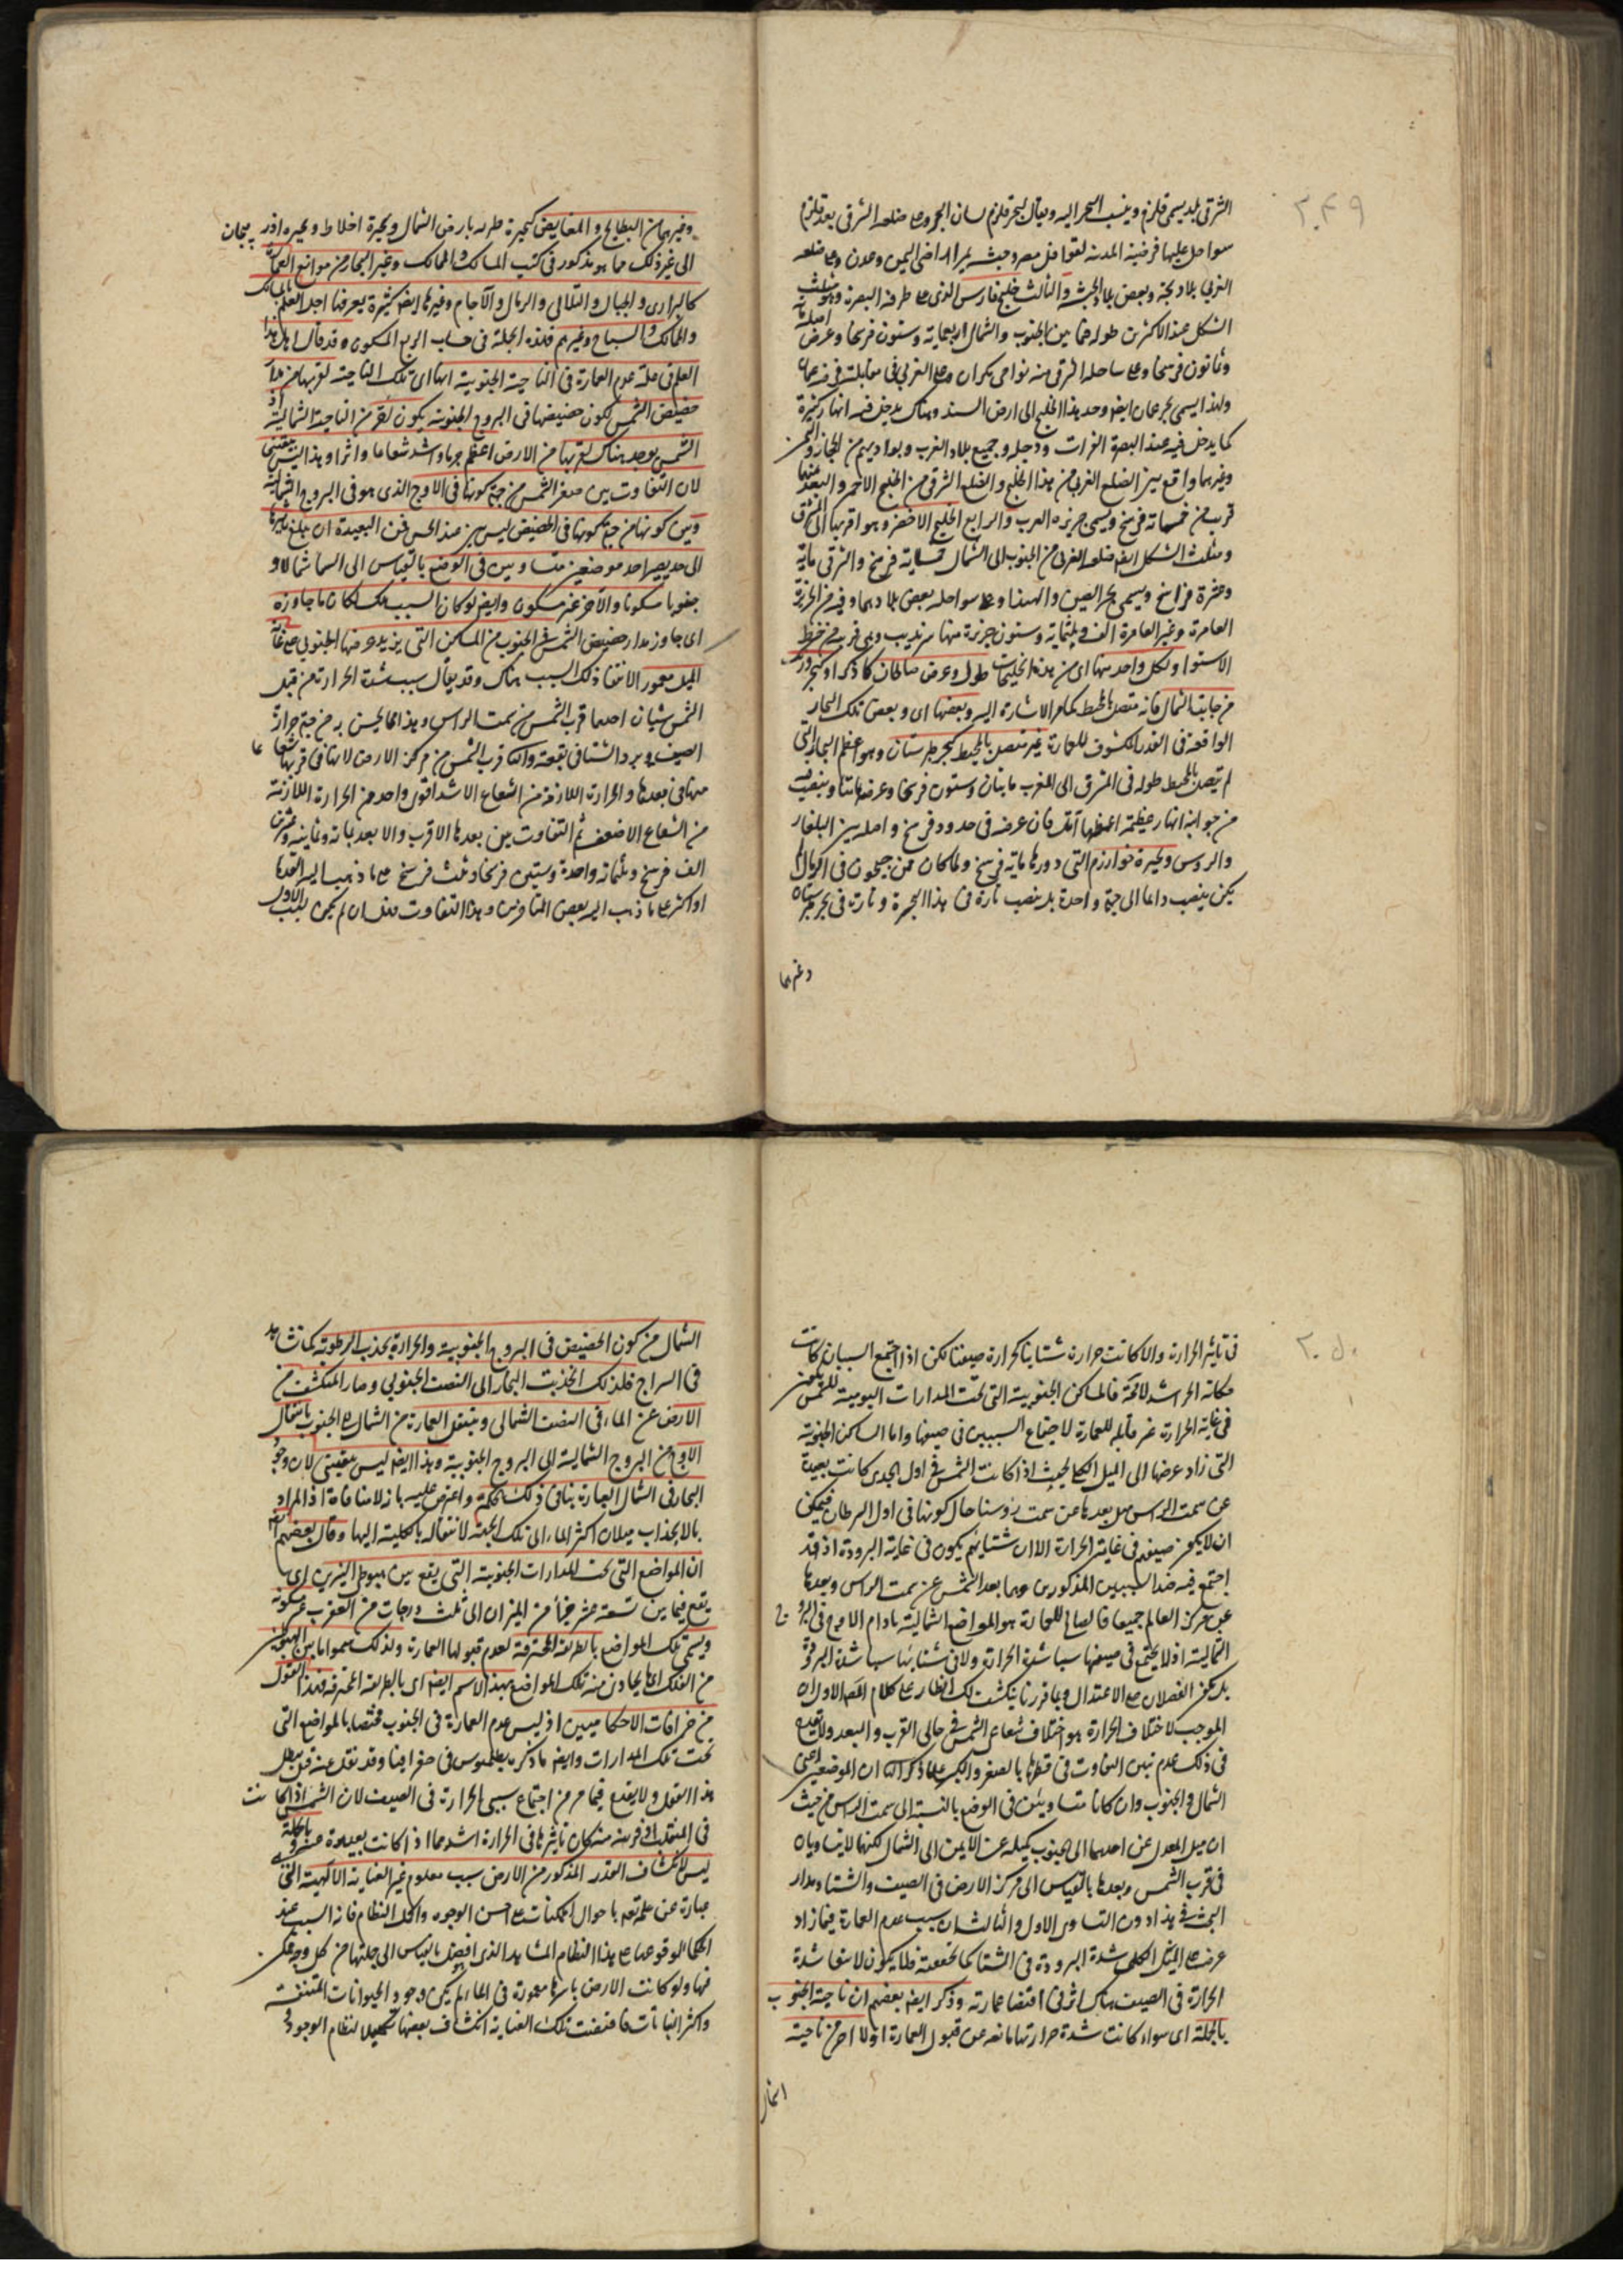 ٢٠٤٩
الشرقى بلد يسمى قلزم وينسب البحر اليه ويقال لبحر قلزم لسان البحر وعلى ضلعه الشرقى بعد قلزم
سواحل عليها فرضة المدينة لقوافل مصر وحبشه يمر الى اراضى اليمن وعدن وعلى ضلعه
الغربى بلاد بجة وبعض بلاد الحبشة والثالث خليج فارس الذى على طرفه البصرة وهو مثلث
الشكل عند الاكثرين طوله فيما بين الجنوب والشمال اربعمائة وستون فرسخا وعرض اصله مائة
وثمانون فرسخا وعلى ساحله الشرقى منه نواحى مكران وعلى الغربى فى مقابلته فرضة عمان
ولهذا يسمى بحر عمان ايضا وحد هذا الخليج الى ارض السند وهناك يدخل فيه انهار كثيرة
كما يدخل فيه عند البصرة الفرات ودجلة وجميع بلاد العرب وبواديهم من الحجاز واليمن
وغيرهما واقع بين الضلع الغربى من هذا الخليج والضلع الشرقى من الخليج الاحمر والبعد بينهما
قريب من خمسمائة فرسخ ويسمى جزيرة العرب والرابع الخليج الاخضر وهو اقربها الى المشرق
ومثلث الشكل ايضا ضلعه الغربى من الجنوب الى الشمال خمسمائة فرسخ والشرقى مائة
وعشرة فراسخ ويسمى بحر الصين والهند وعلى سواحله بعض بلادهما وفيه من الجزيرة
العامرة وغير العامرة الف وثلثمائة وستون جزيرة منها سرنديب وهى قريب من خط
الاستوا ولكل واحد منها اى من هذه الخليجات طول وعرض صالحان كما ذكر او كبحر ورنك
من جانب الشمال فانه متصل بالمحيط كما مر الاشارة اليه وبعضها اى وبعض تلك البحار
الواقعة فى القدر المكشوف للعمارة غير متصل بالمحيط كبحر طبرستان وهو اعظم البحار التى
لم يتصل بالمحيط طوله فى المشرق الى المغرب مايتان وستون فرسخا وعرضه مايتا وينصب
من جوانبه انهار عظيمة اعظمها آتل فان عرضه فى حدود فرسخ واصله بين البلغار
والروس وبحيرة خوارزم التى دورها مائة فرسخ ولما كان من جيحون فى الرمال لم
يكن ينصب دائما الى جهة واحدة بل ينصب تارة فى هذا البحيرة وتارة فى بحر طبرستان
وغيرهما
وغيرهما من البطايح والمغايض كبحيرة طبريه بارض الشمال وبحيرة اخلاط وبحيره اذربيجان
الى غير ذلك مما هو مذكور فى كتب المسالك والممالك وغير البحار من موانع العمارة
كالبرارى والجبال والتلال والرمال والآجام وغيرها ايضا كثيرة يعرفها اهل العلم بالمسالك
والممالك والسياح وغيرهم فهذه الجملة فى حساب الربع المسكون وقد قال اهل هذا
العلم فى علة عدم العمارة فى الناحية الجنوبية انها اى تلك الناحية لقربها من مدار
حضيض الشمس لكون حضيضها فى البروج الجنوبية يكون اقرب من الناحية الشمالية اذ
الشمس يوجد هناك لقربها من الارض اعظم جرما واشد شعاعا واثرا وهذا ليس بيقينى
لان التفاوت بين صغر الشمس من جهة كونها فى الاوج الذى هو فى البروج الشمالية
وبين كونها من جهة كونها فى الحضيض ليس بين عند الحس فمن البعيدة ان يبلغ تأثيرها
الى حد يصير احد موضعين متساويين فى الوضع بالقياس الى السما شمالا و
جنوبا مسكونا والآخر غير مسكون وايضا لو كان السبب ذلك لكان ما جاوزه
اى جاوز مدار حضيض الشمس فى الجنوب من المساكن التى يزيد عرضها الجنوبى على غاية
الميل معمورا لانتفا ذلك السبب هناك وقد يقال سبب شدة الحرارة من قبل
الشمس شيئان احدهما قرب الشمس من سمت الراس وهذا مما يحس به من جهة حرارة
الصيف وبرد الشتا فى بقعة والثانى قرب الشمس من مركز الارض لانها فى قربها شعاعا
منها فى بعدها والحرارة اللازمة من الشعاع الاشد اقوى واحد من الحرارة اللازمة
من الشعاع الاضعف ثم التفاوت بين بعدها الاقرب والابعد بمائة وثمانية وعشرين
الف فرسخ وثلثمائه واحدة وستين فرسخا وثلث فرسخ على ما ذهب اليه القدما
او اكثر على ما ذهب اليه بعض المتأخرين وهذا التفاوت وان لم يكن للسبب الاول
٢٠٥٠
فى تأثير الحرارة والا كانت حرارة شتاينا كحرارة صيفنا لكن اذا اجتمع السببان كانت
مكانه الحر اشد لا محة فالمساكن الجنوبية التى تحت المدارات اليومية للشمس يكون
فى غاية الحرارة غير قابله للعمارة لاجتماع السببين فى صيفها واما المساكن الجنوبية
التى زاد عرضها الى الميل الكلى بحيث اذا كانت الشمس فى اول الجدى كانت بعيدة
عن سمت الراس مثل بعدها عن سمت رؤسنا حال كونها فى اول السرطان فيمكن
ان لا يكون صيفهم فى غاية الحرارة الا ان شتايهم يكون فى غاية البرودة اذ قد
اجتمع فيه ضد السببين المذكورين وهما بعد الشمس عن سمت الراس وبعدها
عن مركز العالم جميعا فالصالح للعمارة هو المواضع الشمالية ما دام الاوج فى البروج
الشمالية اذ لا يجتمع فى صيفها سببا شدة الحرارة ولا فى شتايها سببا شدة البرودة
بل يكون الفصلان على الاعتدال وبما قررنا ينكشف لك انظار على كلام المصنف الاول ان
الموجب لاختلاف الحرارة هو اختلاف شعاع الشمس فى حالى القرب والبعد ولا يقدح
فى ذلك عدم تبين التفاوت فى قطرها بالصغر والكبر على ما ذكر الثانى ان الموضعين اعنى
الشمال والجنوب وان كانا متساويين فى الوضع بالنسبة الى سمت الراس من حيث
ان ميل المعدل عن احدهما الى الجنوب كميله عن الآخر الى الشمال لكنهما لا يتساويان
فى قرب الشمس وبعدها بالقياس الى مركز الارض فى الصيف والشتا ومدار
البحث فى هذا دون التساوى الاول والثالث ان سبب عدم العمارة فيما زاد
عرضه على الميل الكلى شدة البرودة فى الشتا كما تحققته فلا يكون لانتفا شدة
الحرارة فى الصيف هناك اثر فى اقتضا عمارته وذكر ايضا بعضهم ان ناحية الجنوب
بالجملة اى سواء كانت شدة حرارتها مانعه عن قبول العمارة او لا احر من ناحية
الشمال
الشمال من كون الحضيض فى البروج الجنوبية والحرارة يجذب الرطوبة كما تشاهد
فى السراج فلذلك انجذبت البحار الى النصف الجنوبى وصار المنكشف من
الارض عن الماء فى النصف الشمالى وينتقل العمارة من الشمال الى الجنوب بانتقال
الاوج من البروج الشمالية الى البروج الجنوبية وهذا ايضا ليس بيقينى لان وجود
البحار فى الشمال العمارة ينافى ذلك الحكم واعترض عليه بانه لا منافاة اذ المراد
بالانجذاب ميلان اكثر الماء الى تلك الجهة لا انتقاله بالكلية اليها وقال بعضهم ايضا
ان المواضع التى تحت المدارات الجنوبية التى يقع بين هبوطى النيرين اى
يقع فيما بين تسعة عشر جزأ من الميزان الى ثلث درجات من العقرب غير مسكونة
ويسمى تلك المواضع بالطريقة المحترقة لعدم قبولها العمارة ولذلك سموا ما بين الهبوطين
من الفلك اى ما يحاذى منه تلك المواضع بهذا الاسم ايضا اى بالطريقة المحترقة فهذا القول
من خرافات الاحكاميين اذ ليس عدم العمارة فى الجنوب مختصا بالمواضع التى
تحت تلك المدارات وايضا ما ذكره بطلميوس فى جغرافيا وقد نقل عنه قبل يبطل
هذا القول ولا يقدح فيما مر من اجتماع سببى الحرارة فى الصيف لان الشمس اذا كانت
فى المنقلب او قريبة منه كان تأثيرها فى الحرارة اشد مما اذا كانت بعيدة عنه وبالجملة
ليس لانكشاف القدر المذكور من الارض سبب معلوم غير العناية الالهية التى
عبارة عن علمه تعالى باحوال الممكنات على احسن الوجوه واكمل النظام فانه السبب عند
الحكما لوقوعها على هذا النظام المشاهد الذى افضل بالقياس الى جملتها من كل وجه ممكن
فيها ولو كانت الارض باسرها مغمورة فى الماء لم يكن وجود الحيوانات المتنفسة
واكثر النباتات فاقتضت تلك العناية انكشاف بعضها تكميلا لنظام الوجود